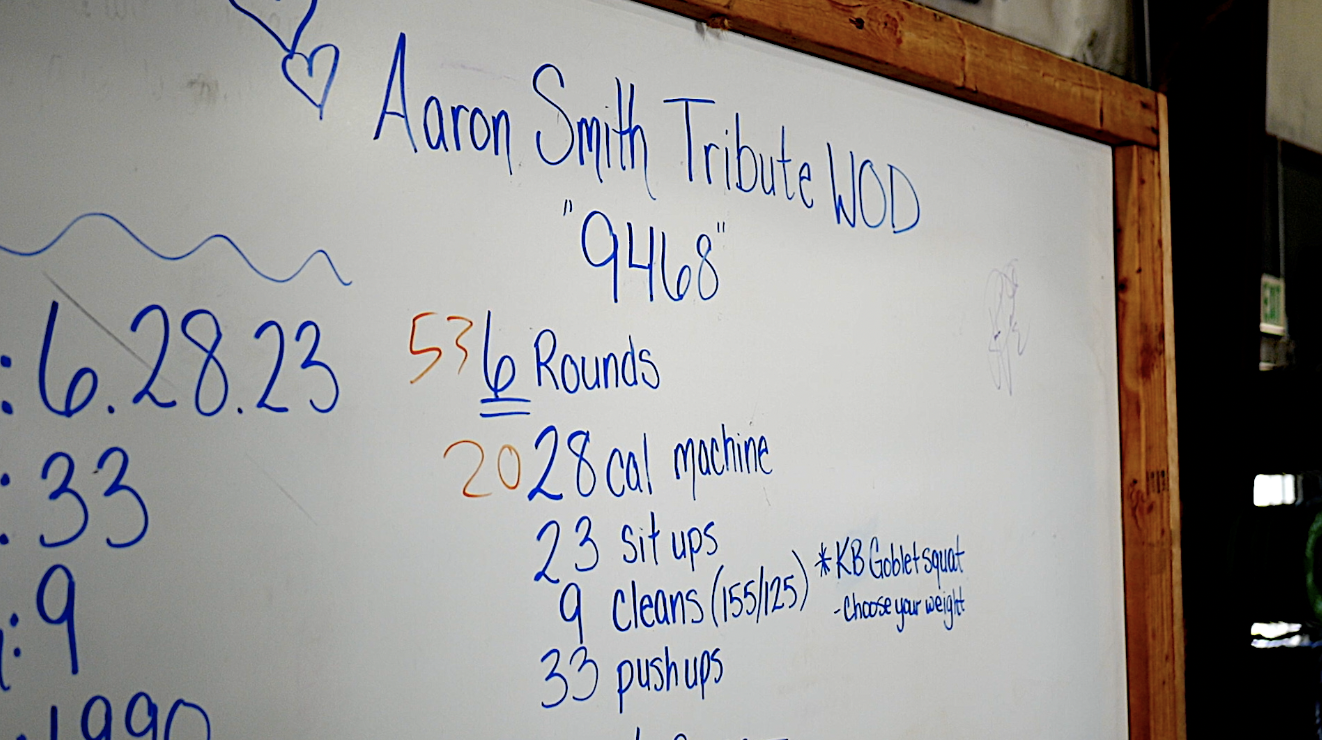 Aaron Smith Tribute WOD
"9468"
: 6.28.23
: 33
: 9
: 1990
53 6 Rounds
20 28 cal machine
23 sit ups
9 cleans (155/125) *KB Goblet squat
- Choose your weight
33 push ups
EXIT